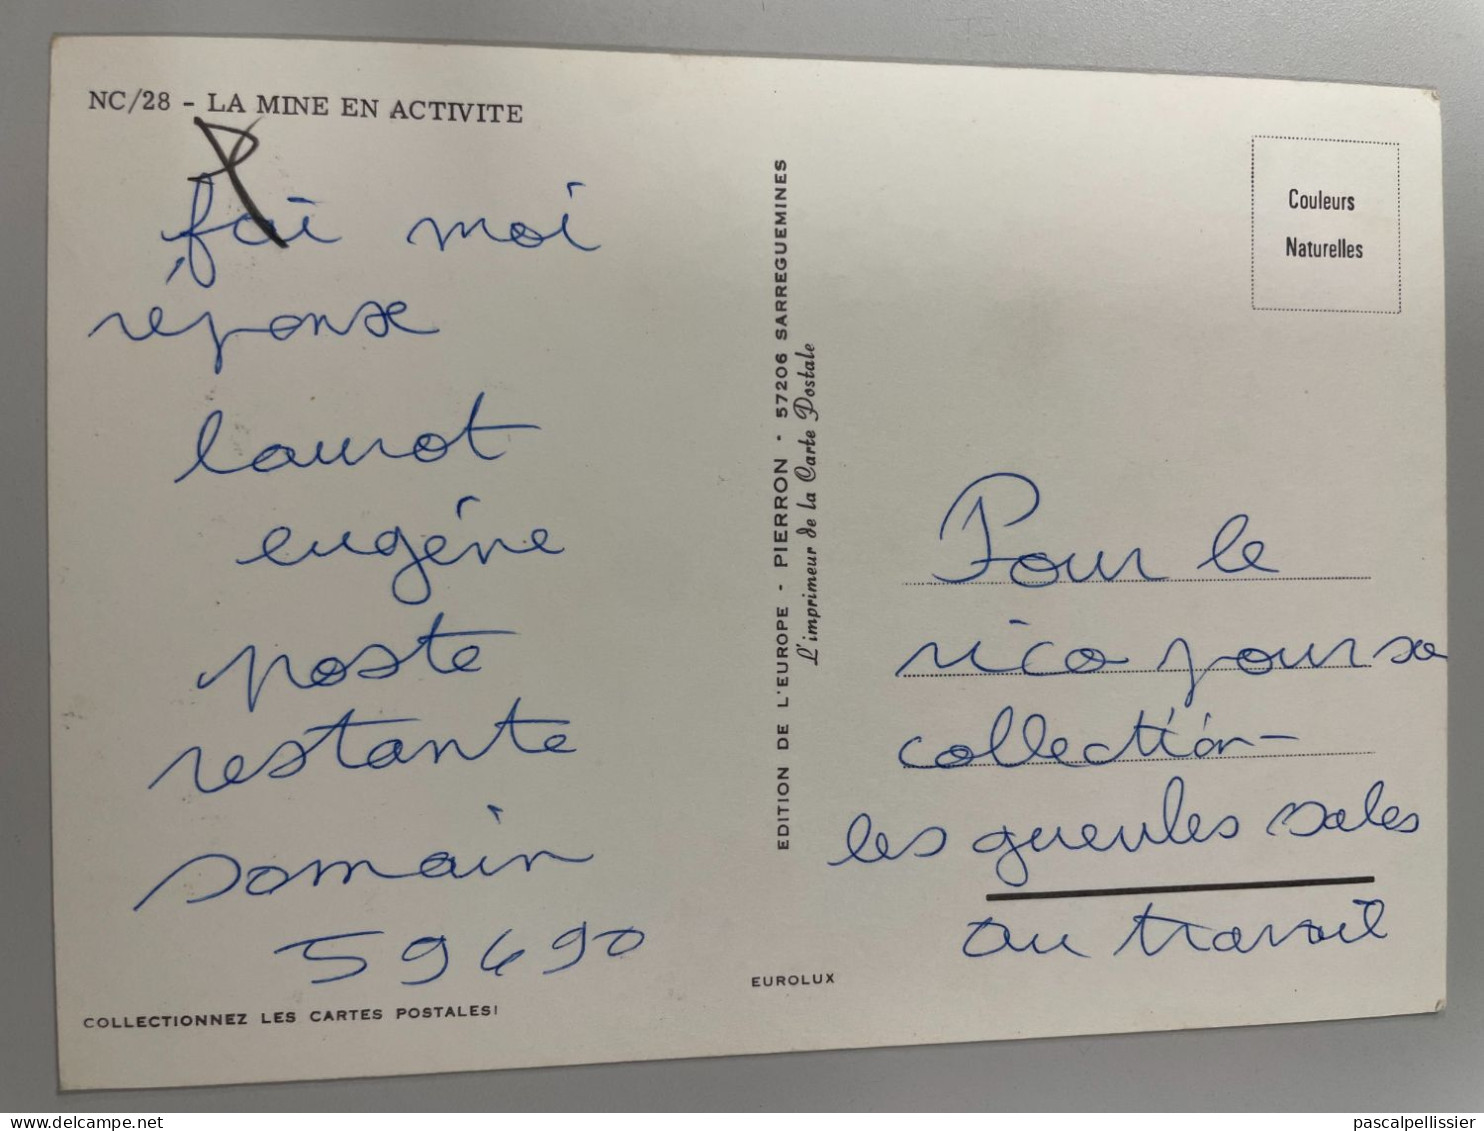 NC/28 - LA MINE EN ACTIVITE
fai moi
réponse
laurot
eugéne
poste
restante
somain
59490
COLLECTIONNEZ LES CARTES POSTALES!
EDITION DE L'EUROPE - PIERRON - 57206 SARREGUEMINES
L'imprimeur de la Carte Postale
EUROLUX
Couleurs
Naturelles
Pour le
rico pour sa
collection -
les gueules sales
au travail
pascalpellissier